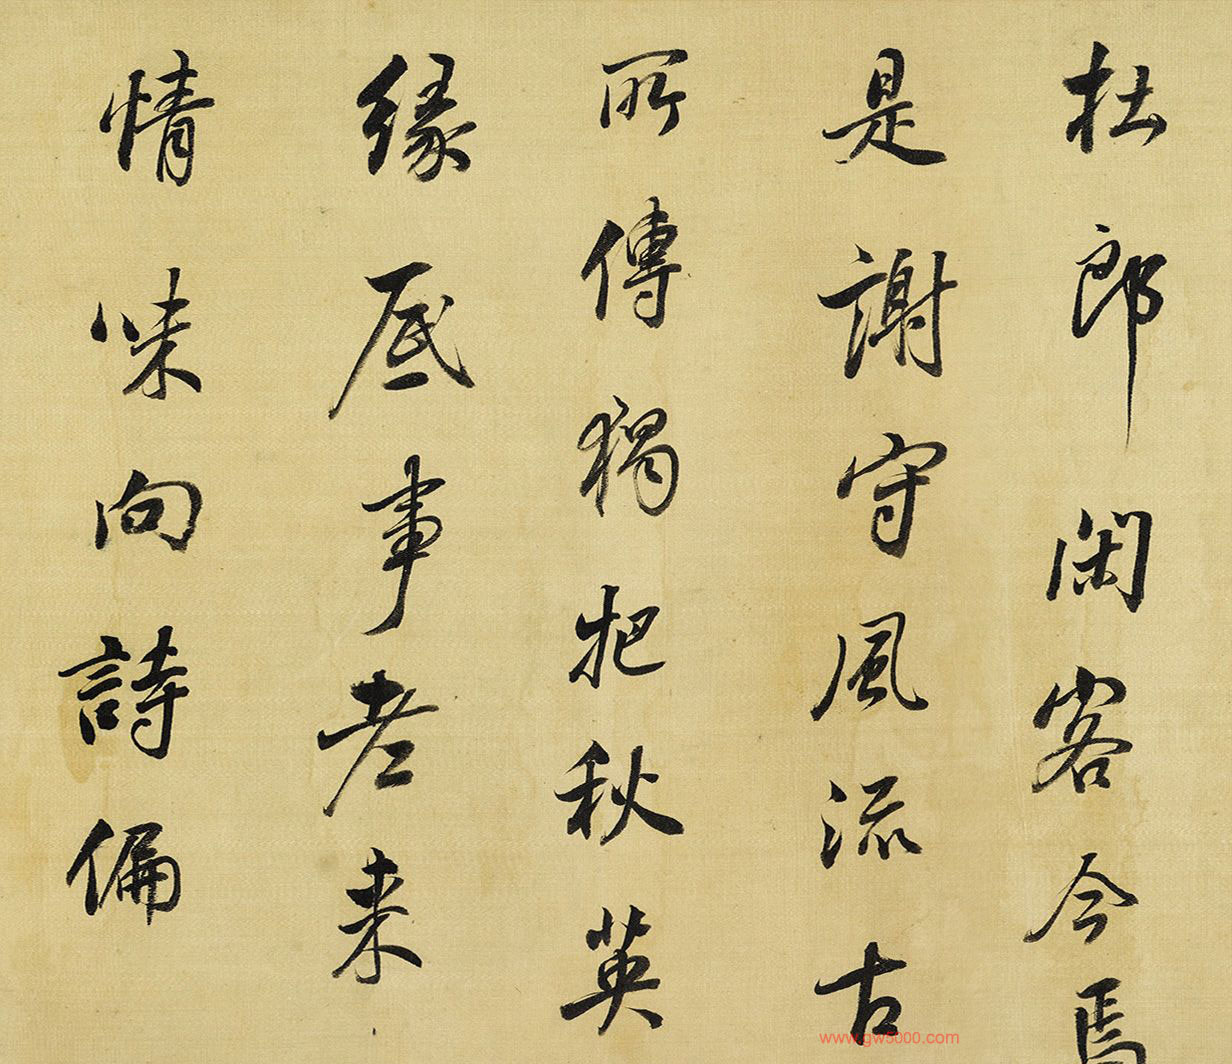 杜郎閑客今焉
是謝守風流古
所傳獨把秋英
緣底事老来
情味向詩偏
www.gw5000.com